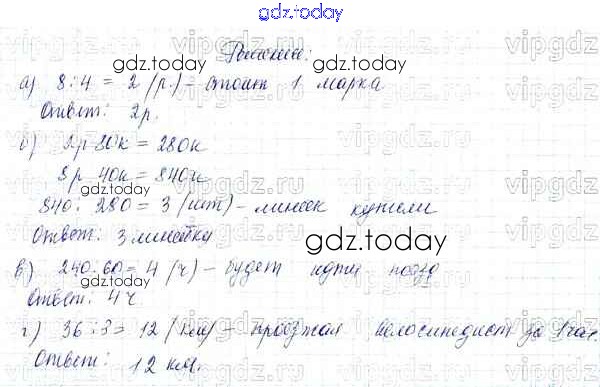 gdz.today
Решение:
а) 8:4 = 2 (р.) – стоит 1 марка
Ответ: 2р.
б) 2р 80к = 280к
8р 40к = 840к
840 : 280 = 3 (шт) – линеек купили
Ответ: 3 линейки
в) 240:60 = 4 (ч) – будет идти поезд
Ответ: 4ч.
г) 36:3 = 12 (км) – проезжал велосипедист за 1 час.
Ответ: 12 км.
gdz.today
gdz.today
gdz.today
gdz.today
vipgdz.ru